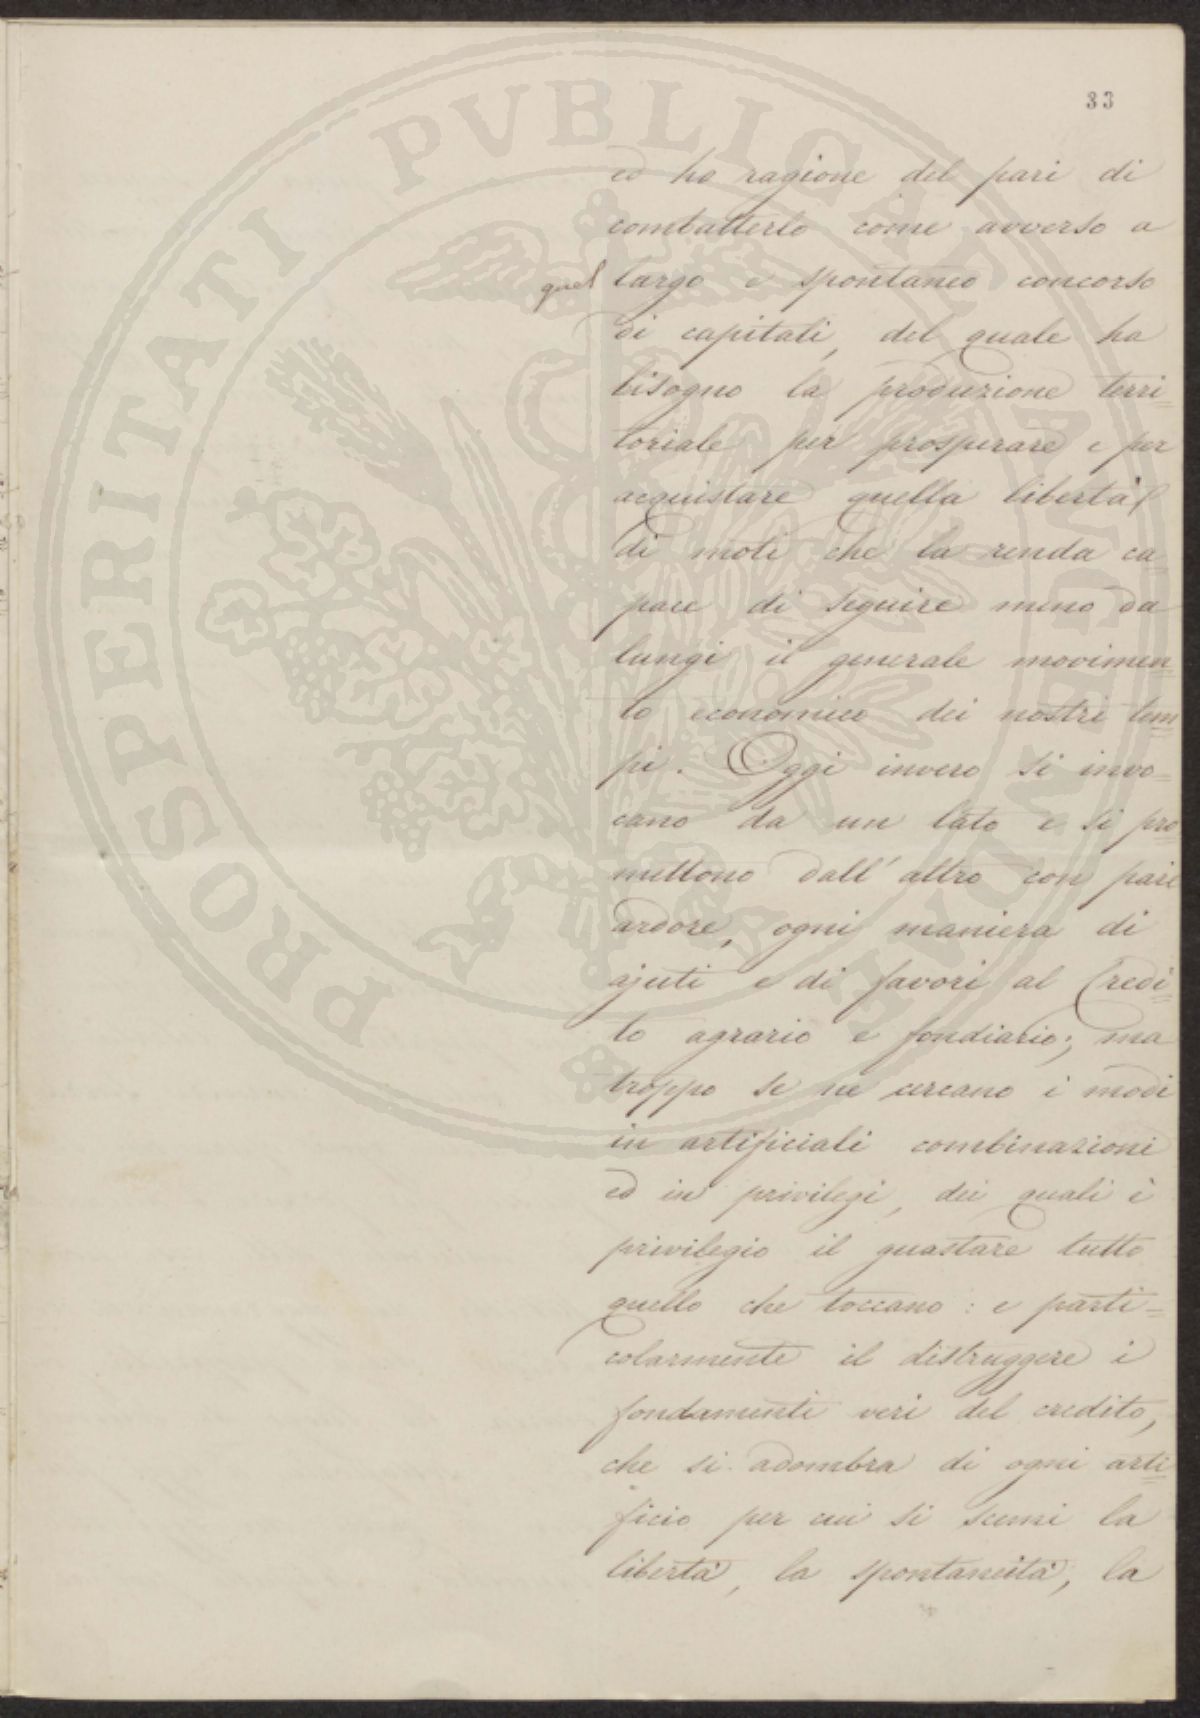 33
ed ha ragione del pari di
combatterlo come avverso a
quel largo e spontaneo concorso
di capitali, del quale ha
bisogno la produzione terri=
toriale per prosperare e per
acquistare quella libertà
di moti che la renda ca=
pace di seguire meno da
lungi il generale movimen=
to economico dei nostri tem=
pi. Oggi invero si invo=
cano da un lato e si pro=
mettono dall'altro con pari
ardore, ogni maniera di
ajuti e di favori al Credi=
to agrario e fondiario; ma
troppo se ne cercano i modi
in artificiali combinazioni
ed in privilegi, dei quali è
privilegio il guastare tutto
quello che toccano: e parti=
colarmente il distruggere i
fondamenti veri del credito,
che si adombra di ogni arti=
ficio per cui si scemi la
libertà, la spontaneità, la
PROSPERITATI PVBLICAE